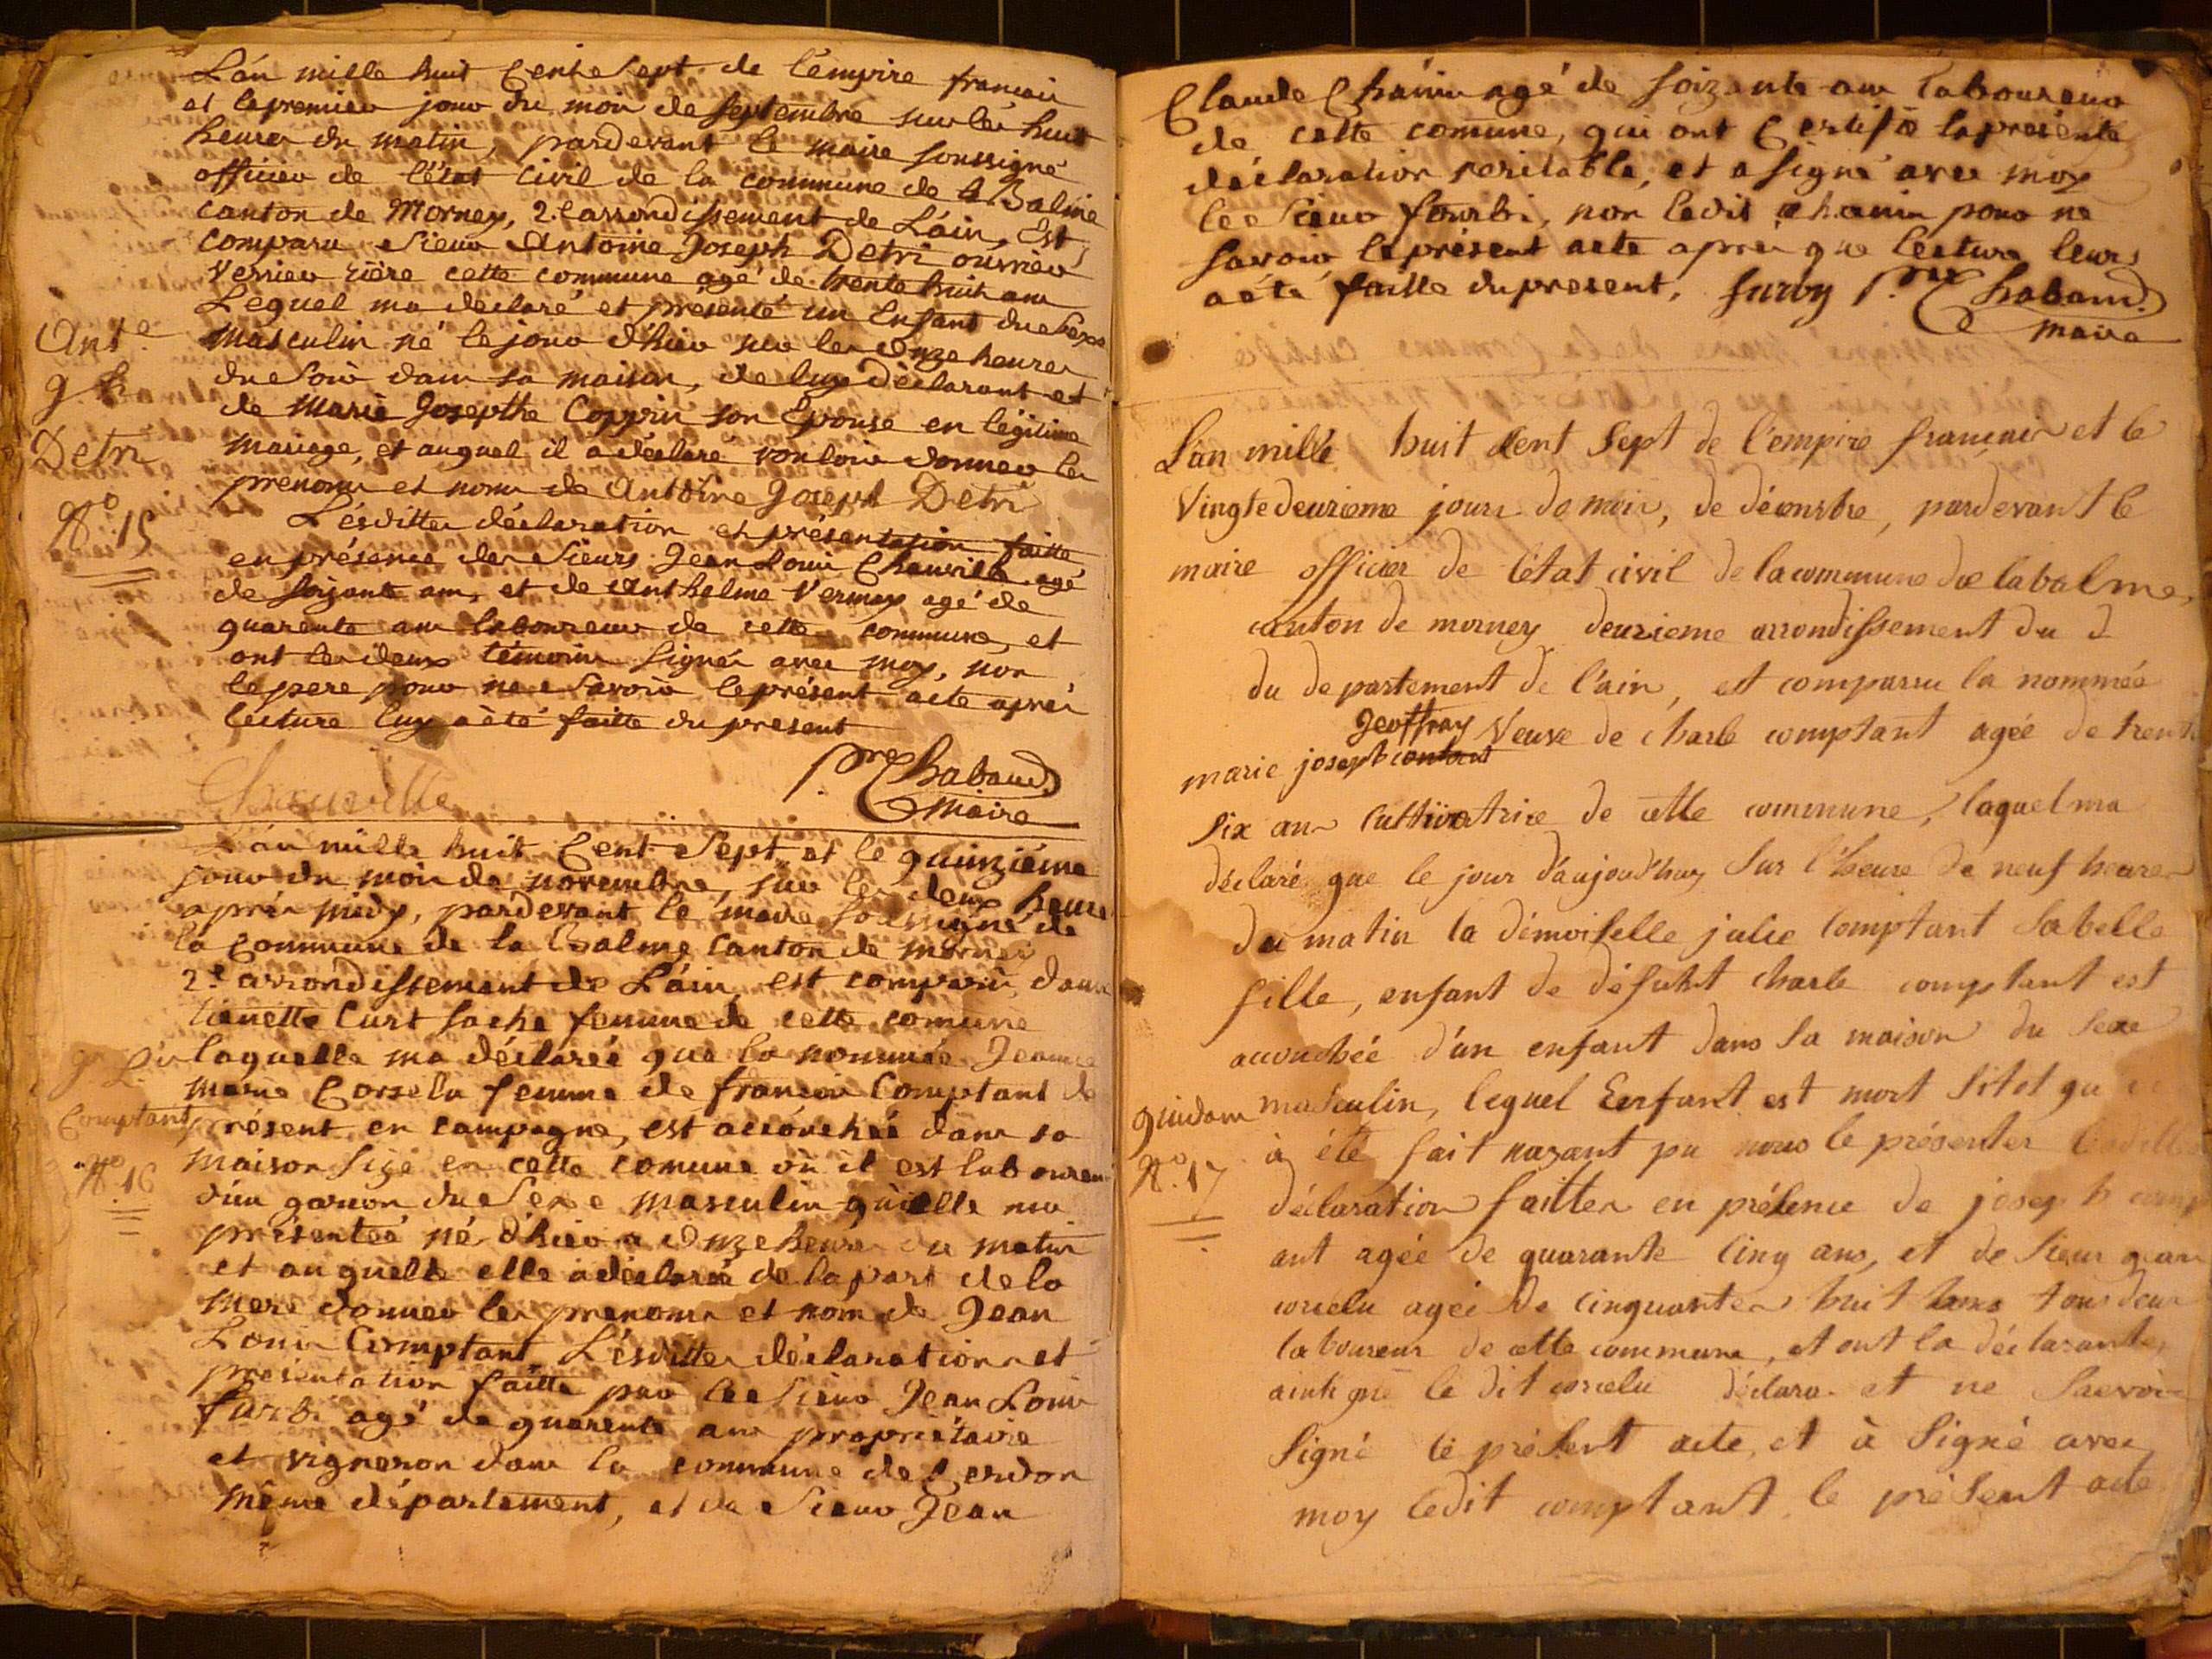 L'an mille huit Cent Sept de l'empire francois
et le premier jour du mois de Septembre sur les huit
heures du matin, pardevant le maire soussigné
officier de l'état civil de la commune de la Balme
canton de Mornay, 2.e arrondissement de L'ain, Est
comparu Sieur Antoine Joseph Detri ouvrier
Verrier rière cette commune agé de trente huit ans
Lequel ma declaré et présenté un Enfant du Sexe
Masculin né le jour d'hier sur les onze heures
du Soir dans sa maison, de luy déclarant et
de Marie Josepthe Coppin son Epouse en légitime
Mariage, et auquel il a déclaré vouloir donner les
prenoms et noms de Antoine Joseph Detri
Ant.e
j.h
Detri
N.o 15
Lesdittes déclaration et présentation faitte
en présence des Sieurs Jean Louis Chauville agé
de Soizante ans, et de Anthelme Vernay agé de
quarente ans laboureurs de cette commune, et
ont les deux témoins signés avec moy, non
le pere pour ne Savoir le présent acte après
lecture luy a été faitte du present
P.re Chabaud
Maire
Chauville
L'an mille huit Cent Sept et le quinzième
jour du mois de novembre, sur les deux heures
après midy, pardevant le maire soussigné de
la Commune de la Balme Canton de Mornai
2.e arrondissement de L'ain, est comparu, dame
tienette Curt sache femme de cette comune
laquelle ma déclarée que la nommée Jeanne
Marie Corselu femme de francois Comptant de
présent en Campagne, est accouchée dans sa
Maison Sizé en cette comune où il est laboureur
d'un garcon du Sexe Masculin qu'elle ma
présentée né d'hier a onze heures du matin
et au quelle elle a déclarée de la part de la
Mere donner les prenoms et nom de Jean
Louis Comptant. Lesdittes déclarations et
présentation faitte par lee Sieur Jean Louis
furbi agé de quarente ans propriétaire
et vigneron dans la commune de Cerdon
Même département, et de Sieur Jean
Comptant
N.o 16
Claude Chanin agé de soizante ans laboureur
de cette comune, qui ont Certifié la présente
déclaration veritable, et a signé avec moy
lee Sieur fourbi, non ledit chanin pour ne
Savoir le présent acte après que lecture leurs
a été faitte du present.
P.re Chabaud
Maire
L'an mille huit Cent Sept de l'empire français et le
Vingtedeuxieme jours de mois, de décembre, pardevant le
maire officier de l'état civil de la commune de labalme,
canton de mornay deuzieme arrondissement du d
du departement de l'ain, est comparru la nommée
Geoffray
marie josept contant Veuve de charle comptant agée de trente
six ans Cultivatrice de cette commune, laquel ma
déclaré que le jour d'aujoud'huy Sur l'heure de neuf heures
du matin la démoiselle julie Comptant Sabelle
fille, enfant de défunt charle comptant est
accouchée d'un enfant dans sa maison du Sexe
masculin, lequel Eenfant est mort sitot qu
à été fait nayant pu nous le présenter
déclaration faittes en présence de joseph comp
ant agée de quarante cinq ans, et de Sieur
corcelu agée de cinquante huit tous deux
laboureur de cette commune, et ont la déclarante
ainsi que le dit corcelu déclaré et ne Savoir
Signé le présent acte, et à Signé avec
moy ledit comptant le présent acte
quidam
N.o 17